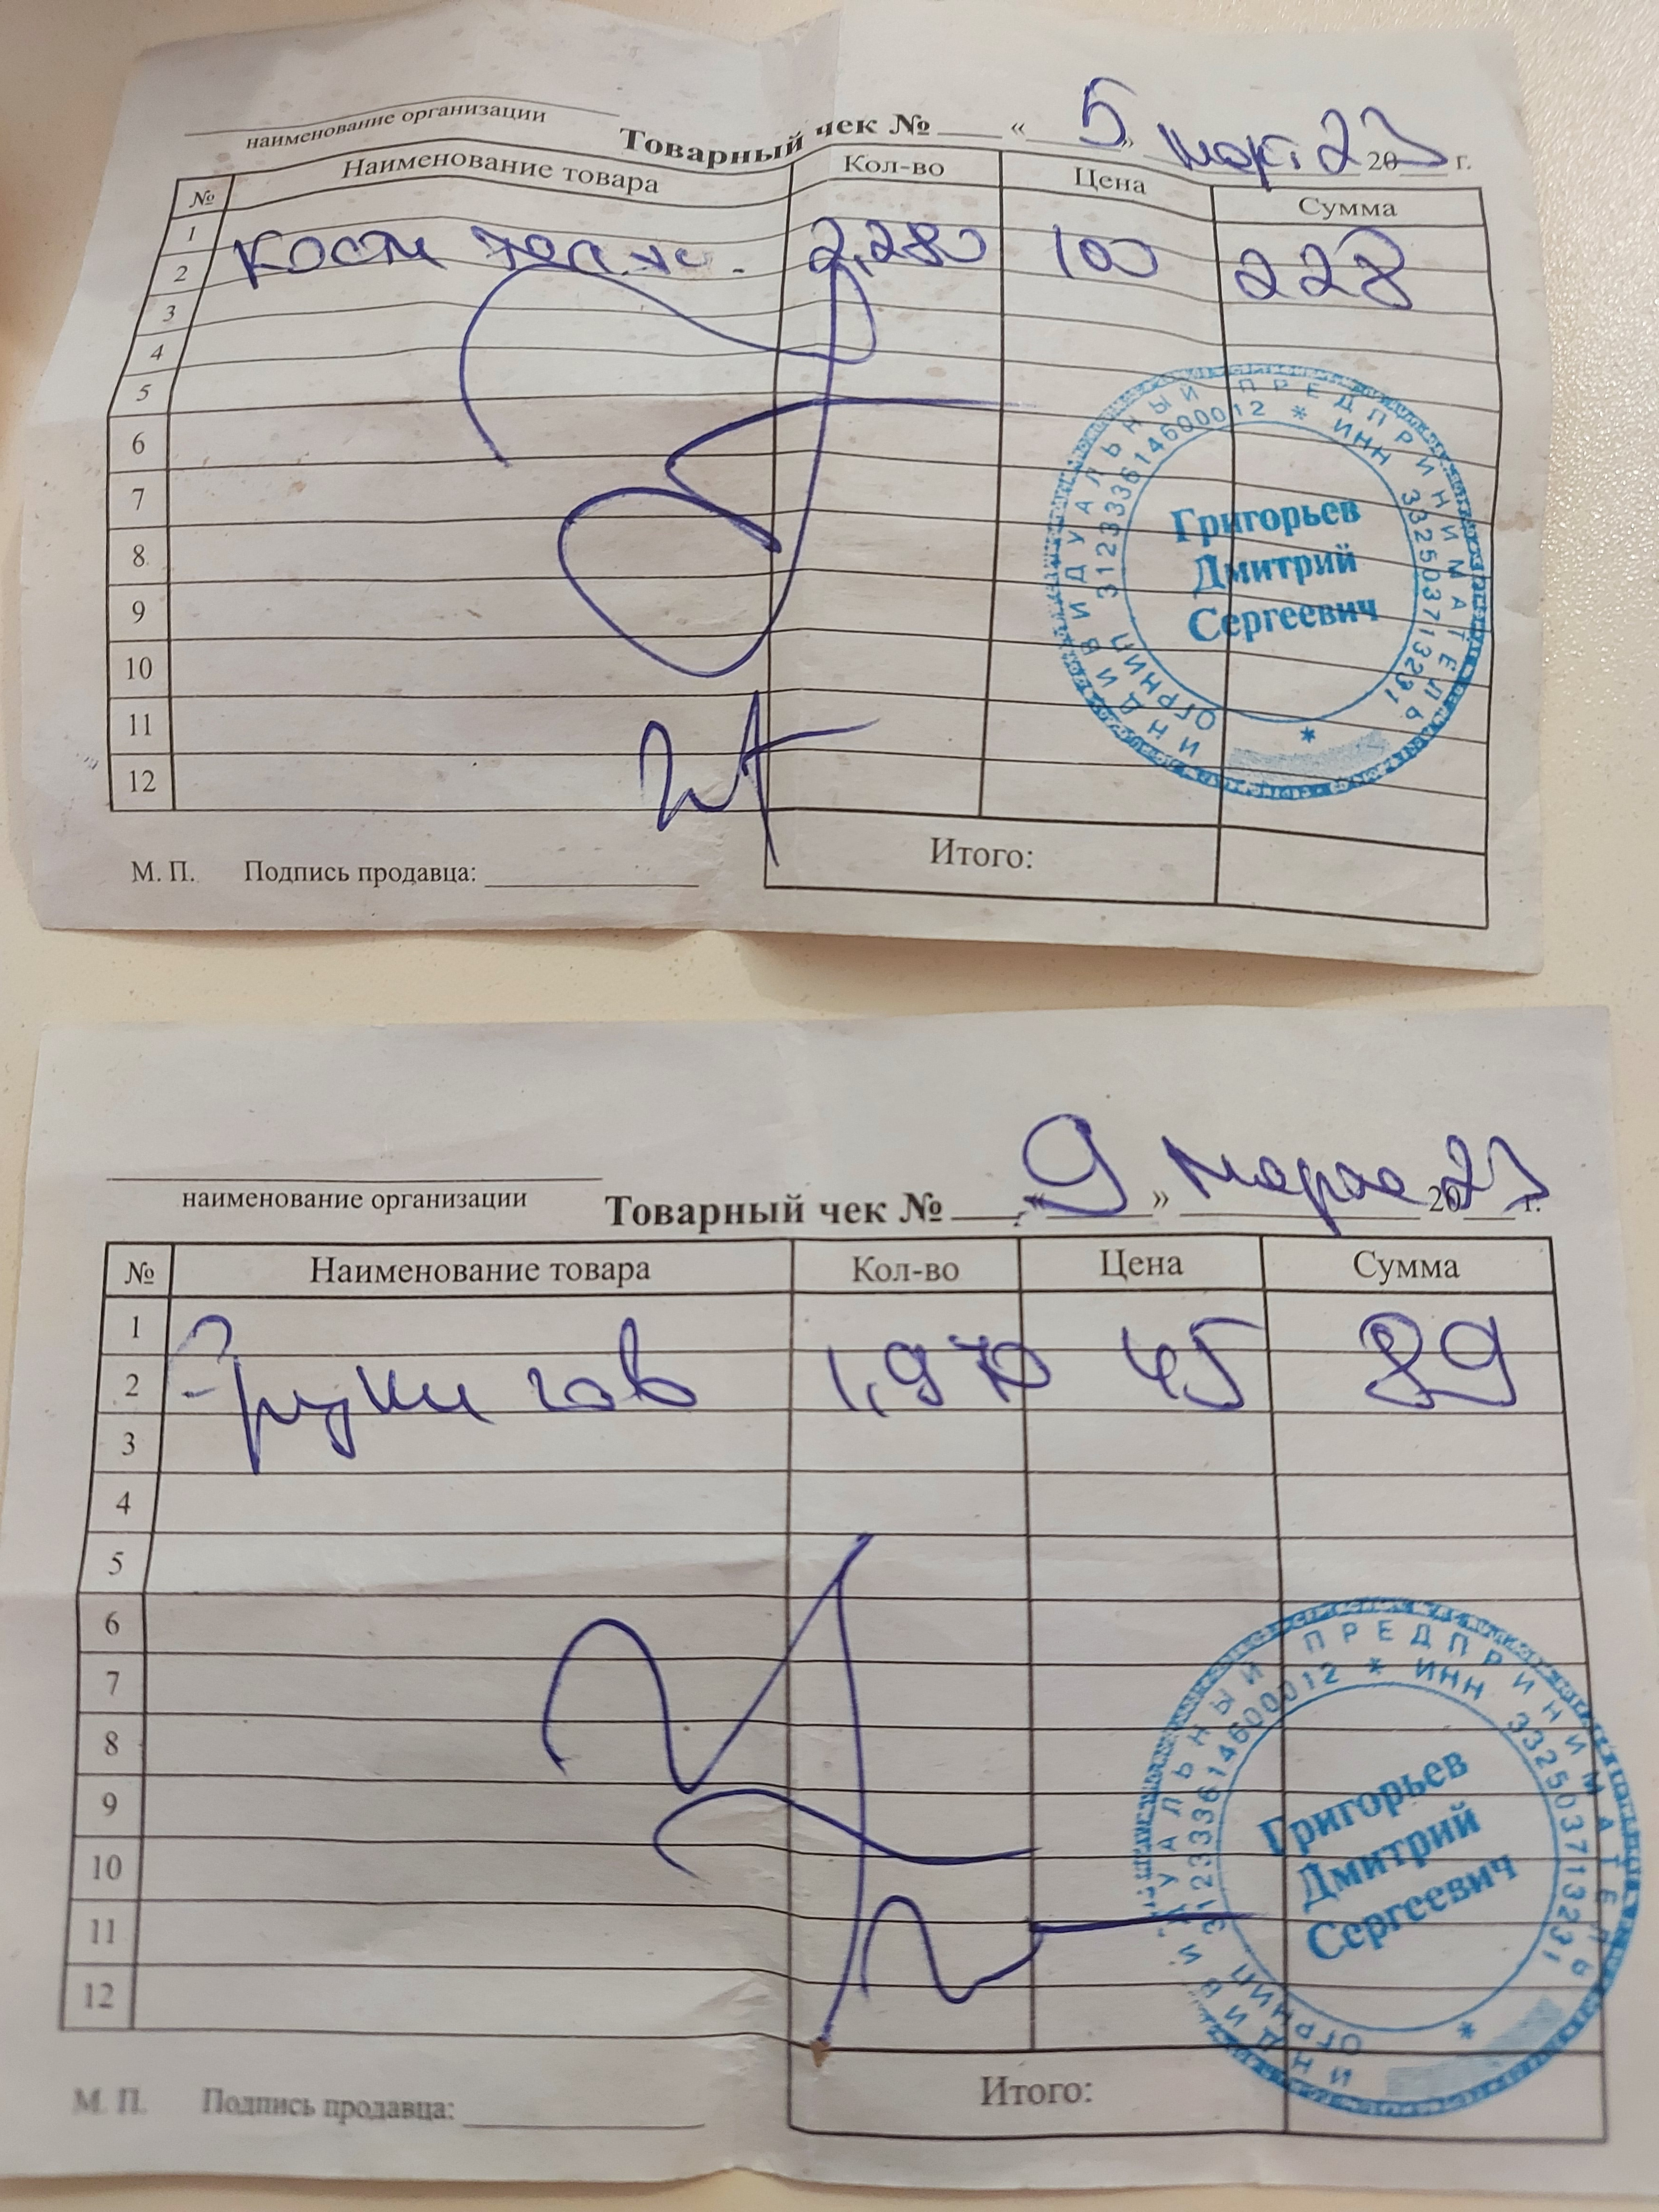 наименование организации
Товарный чек № « 5 » март 23 20 г.
№ Наименование товара Кол-во Цена Сумма
1
2 Кости 2,280 100 228
3
4
5
6
7
8
9
10
11
12
Итого:
М. П. Подпись продавца:
ИНДИВИДУАЛЬНЫЙ ПРЕДПРИНИМАТЕЛЬ
ОГРНИП 312333614600012 * ИНН 332503713231 *
Григорьев
Дмитрий
Сергеевич
наименование организации
Товарный чек № « 9 » марта 20 23 г.
№ Наименование товара Кол-во Цена Сумма
1
2 гов 1,970 45 89
3
4
5
6
7
8
9
10
11
12
Итого:
М. П. Подпись продавца:
ИНДИВИДУАЛЬНЫЙ ПРЕДПРИНИМАТЕЛЬ
ОГРНИП 312333614600012 * ИНН 332503713231 *
Григорьев
Дмитрий
Сергеевич